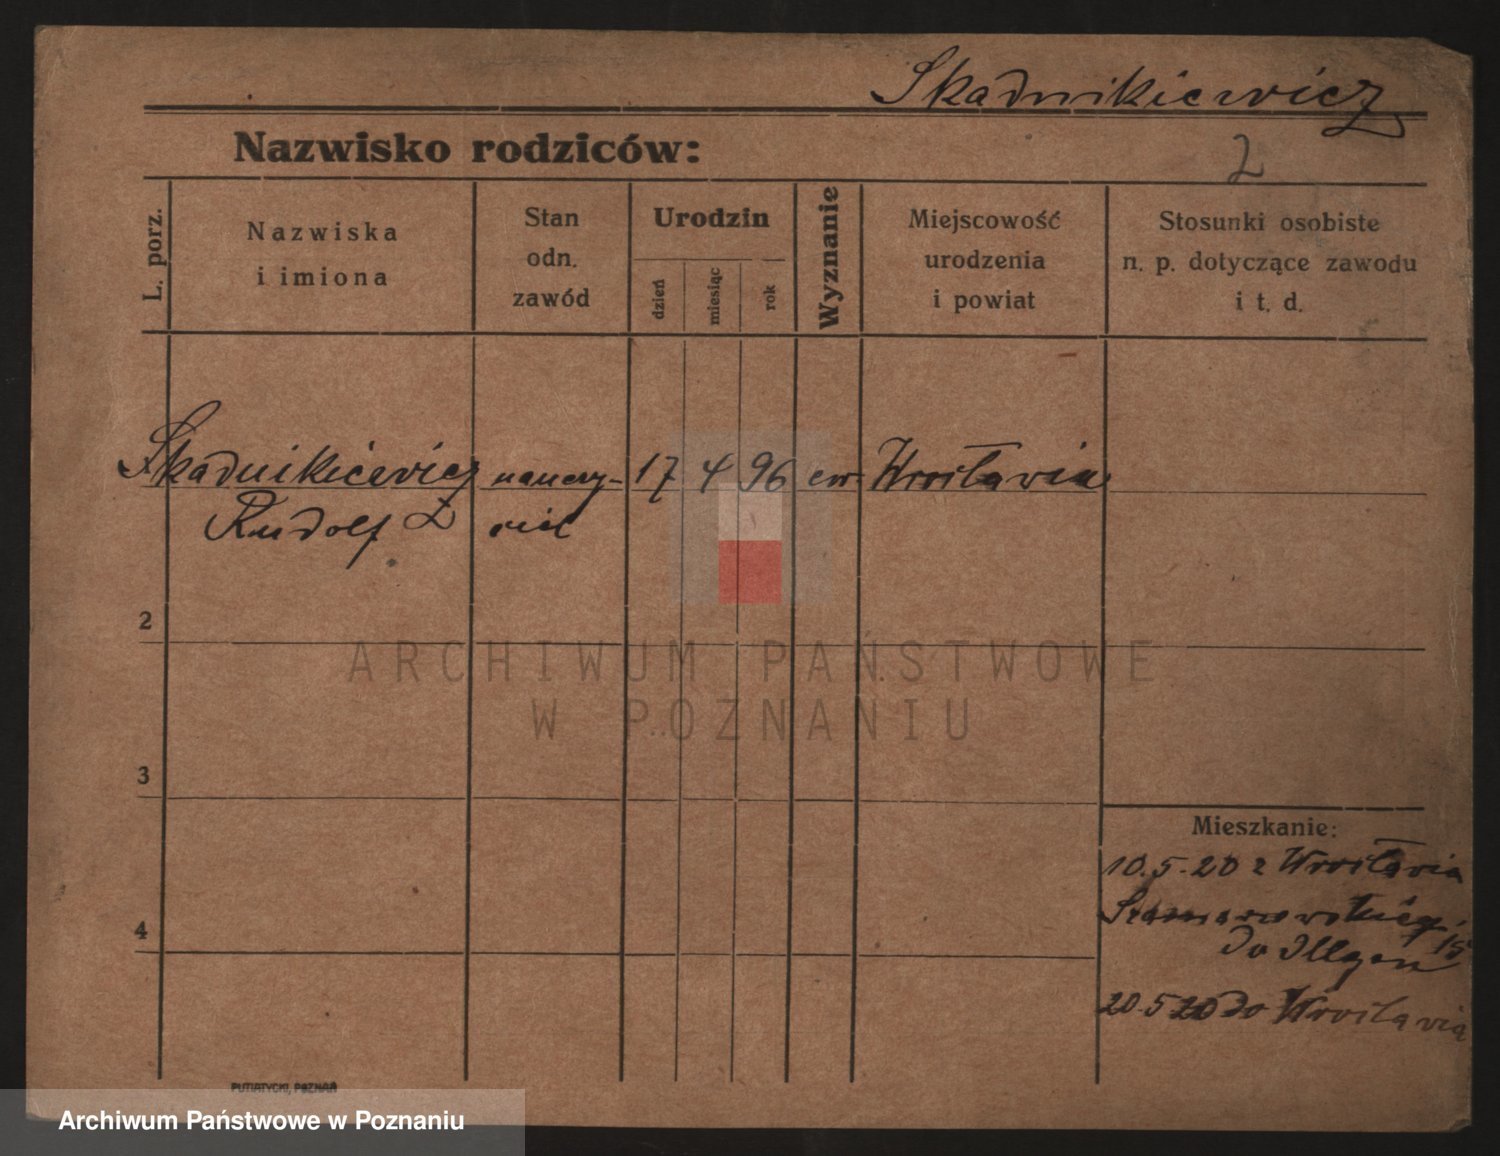 Skadnikiewicz
2
Nazwisko rodziców:
L. porz.
Nazwiska
i imiona
Stan
odn.
zawód
Urodzin
dzień
miesiąc
rok
Wyznanie
Miejscowość
urodzenia
i powiat
Stosunki osobiste
n. p. dotyczące zawodu
i t. d.
Skadnikiewicz nauczy- 17 4 96 ew. Wrocławia
Rudolf ciel
2
3
4
Mieszkanie:
10.5.20 z Wrocławia
15
do Illgen
20.5 20 do Wrocławia
PUTIATYCKI, POZNAŃ
ARCHIWUM PAŃSTWOWE
W POZNANIU
Archiwum Państwowe w Poznaniu